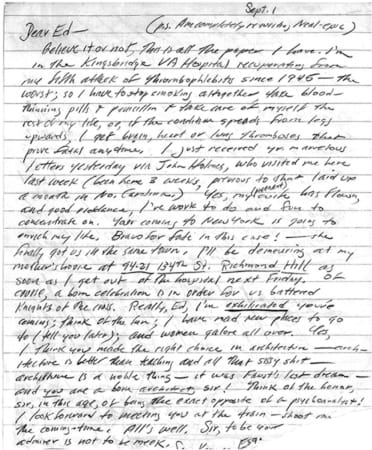 Sept. 1
Dear Ed— (p.s. Am completely rewriting Neal-epic)
Believe it or not, this is all the paper I have. I'm
in the Kingsbridge VA Hospital recuperating from
my fifth attack of thrombophlebitis since 1945 — the
worst; so I have to stop smoking altogether, take blood-
thinning pills & penicillin & take care of myself the
rest of my life, or, if the condition spreads from legs
upwards, I get brain, heart or lung thromboses that
prove fatal anytime. I just received yr. marvelous
letters yesterday via John Holmes, who visited me here
last week (been here 3 weeks, previous to that laid up
a month in No. Carolina.) Yes, my wife has flown,
and good riddance, I've work to do and fun to
concentrate on. Your coming to New York is going to
enrich my life. Bravo for fate in this case! — she
finally got us in the same town. I'll be demeuring at my
mother's house at 94-21 134th St. Richmond Hill as
soon as I get out of the hospital next Friday. Of
course, a born celebration is in order for us battered
Knights of the Mass. Really, Ed, I'm exhilirated you're
coming; think of the fun; I have mad new places to go
to (tell you later); and women galore all over. Yes,
I think you made the right choice in architecture — arch-
itecture is better than teaching and all that sissy shit —
architecture is a noble thing — it was Faust's last dream —
and you are a born architect, sir! Think of the honor,
sir, in this age, of being the exact opposite of a psychoanalyst!
I look forward to meeting you at the train — shoot me
the coming-time. All's well. Sir, to be your
admirer is not to be meek.
Esq.